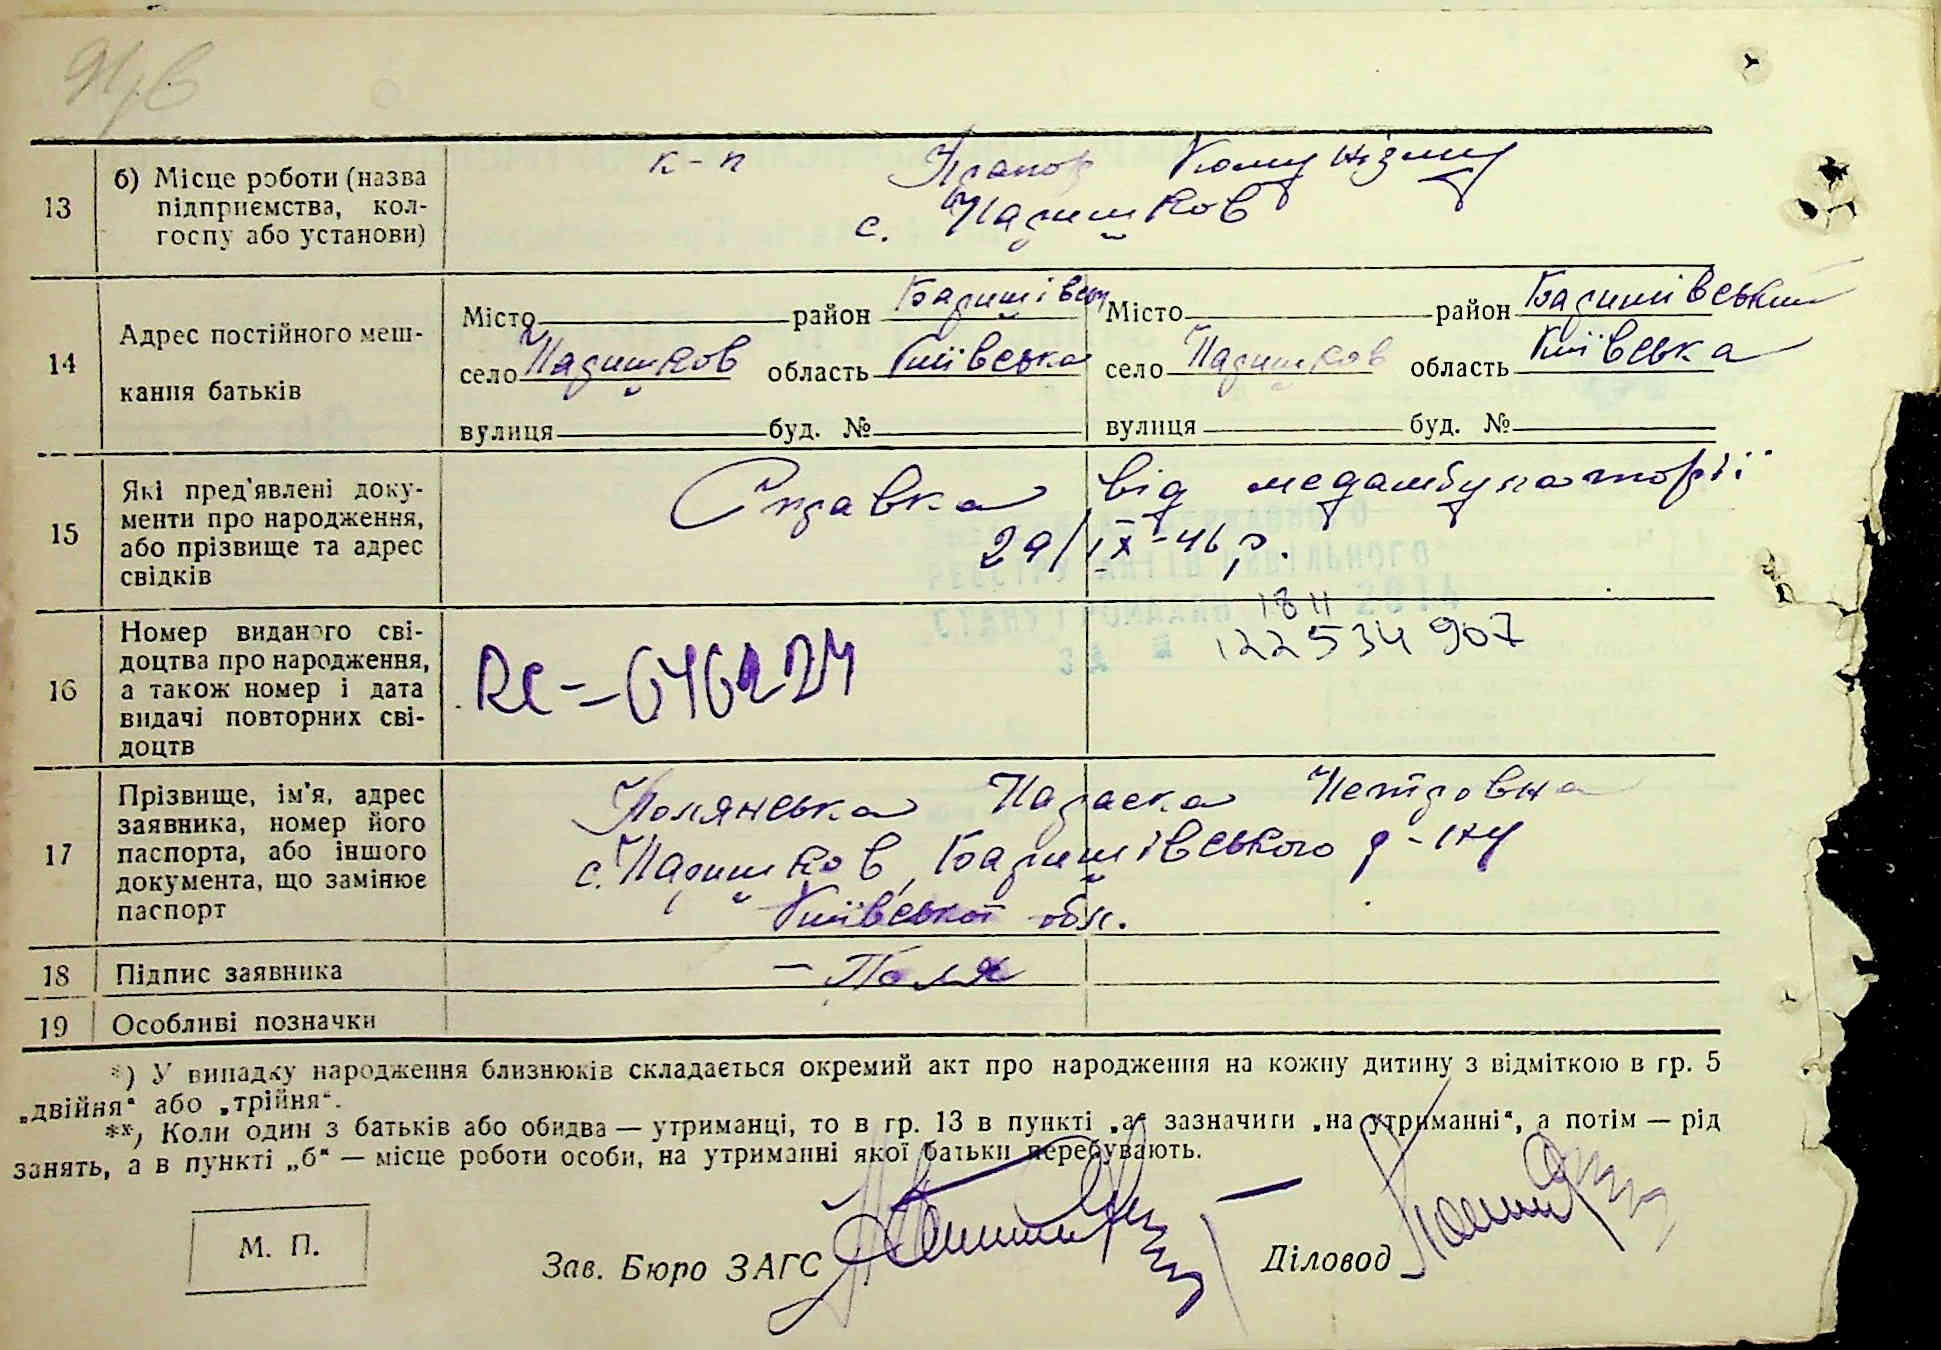 13
б) Місце роботи (назва
підприємства, кол-
госпу або установи)
к-п Прапор Комунізму
с. Паришков
14
Адрес постійного меш-
кання батьків
Місто район Баришівськ
село Паришков область Київська
вулиця буд. №
Місто район Баришівський
село Паришков область Київська
вулиця буд. №
15
Які пред'явлені доку-
менти про народження,
або прізвище та адрес
свідків
Справка від медамбулаторії
29/IX-46 р.
16
Номер виданого сві-
доцтва про народження,
а також номер і дата
видачі повторних сві-
доцтв
1811
122534907
17
Прізвище, ім'я, адрес
заявника, номер його
паспорта, або іншого
документа, що замінює
паспорт
Полянська Параска Петровна
с. Паришков, Баришівського р-ну
Київської обл.
18
Підпис заявника
- Поля
19
Особливі позначки
*) У випадку народження близнюків складається окремий акт про народження на кожну дитину з відміткою в гр. 5
„двійня“ або „трійня“.
**) Коли один з батьків або обидва — утриманці, то в гр. 13 в пункті „а“ зазначити „на утриманні“, а потім — рід
занять, а в пункті „б“ — місце роботи особи, на утриманні якої батьки перебувають.
М. П.
Зав. Бюро ЗАГС
Діловод